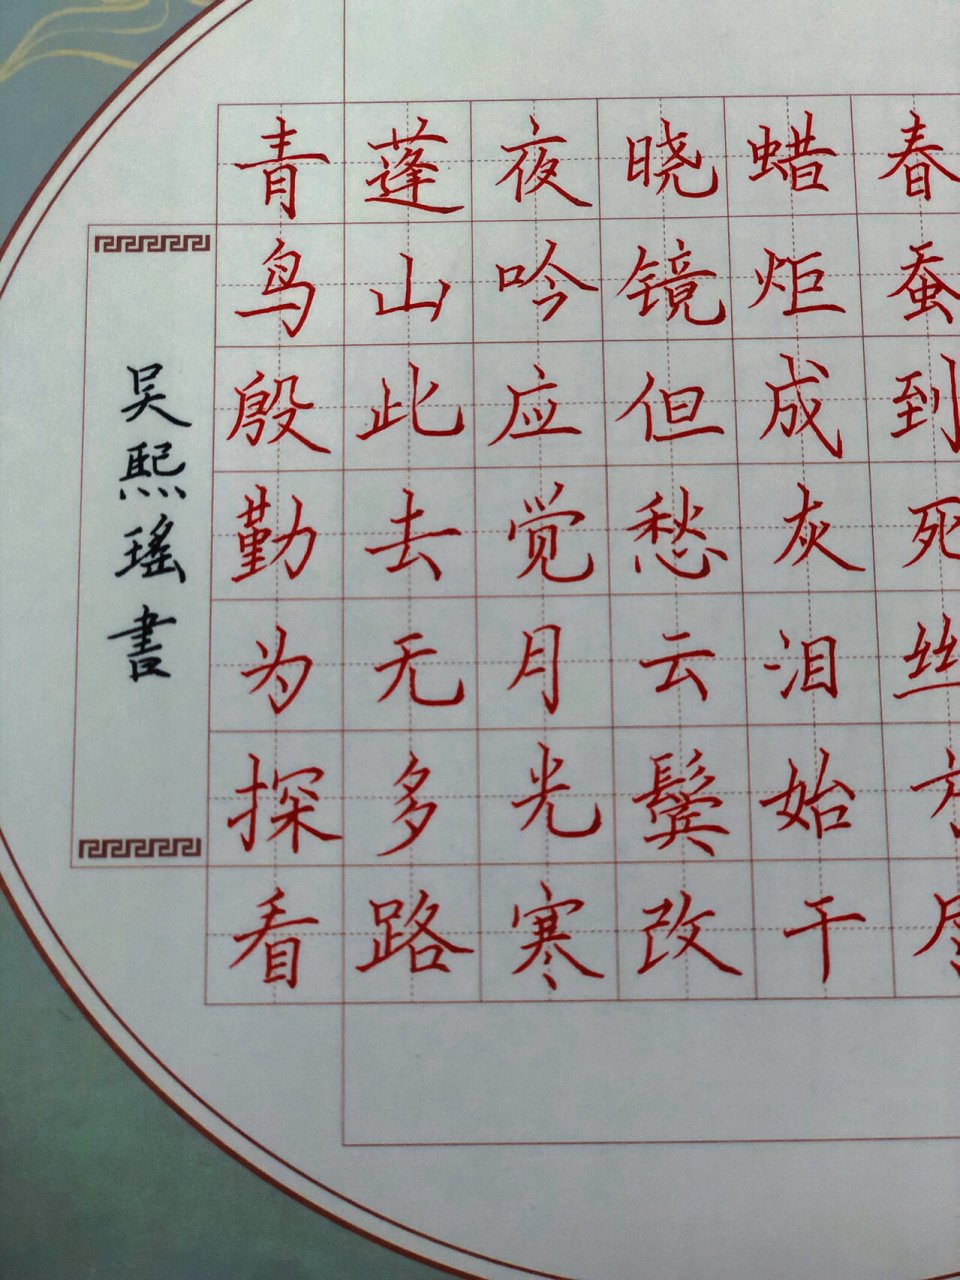 春蚕到死丝方尽
蜡炬成灰泪始干
晓镜但愁云鬓改
夜吟应觉月光寒
蓬山此去无多路
青鸟殷勤为探看
吴熙瑶書